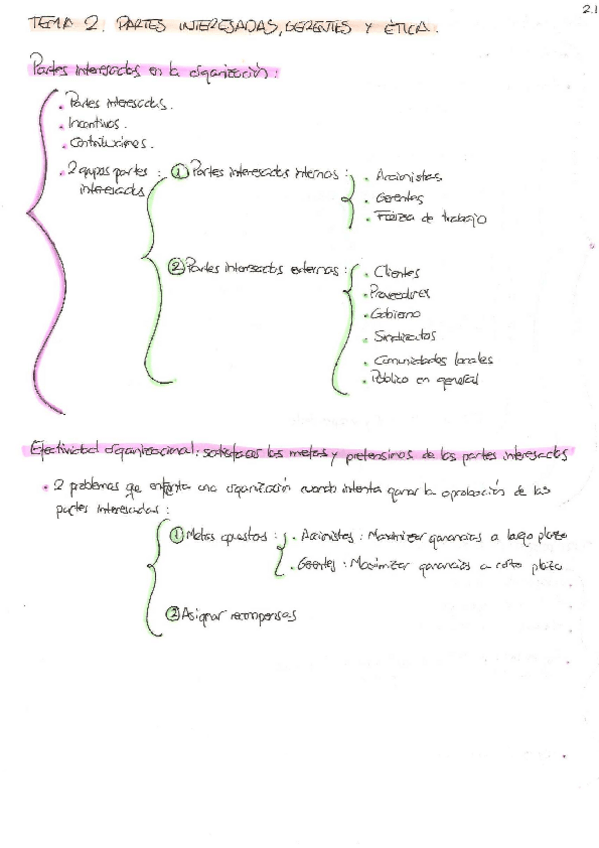 2.1
TEMA 2. PARTES INTERESADAS, GERENTES Y ÉTICA.
Partes interesadas en la organización:
• Partes interesadas.
• Incentivos.
• Contribuciones.
• 2 grupos partes interesadas:
① Partes interesadas internas:
• Accionistas
• Gerentes
• Fuerza de trabajo
② Partes interesadas externas:
• Clientes
• Proveedores
• Gobierno
• Sindicatos
• Comunidades locales
• Público en general
Efectividad organizacional: satisfacer las metas y pretensiones de las partes interesadas
• 2 problemas que enfrenta una organización cuando intenta ganar la aprobación de las
partes interesadas:
① Metas opuestas:
• Accionistas: Maximizar ganancias a largo plazo
• Gerentes: Maximizar ganancias a corto plazo
② Asignar recompensas